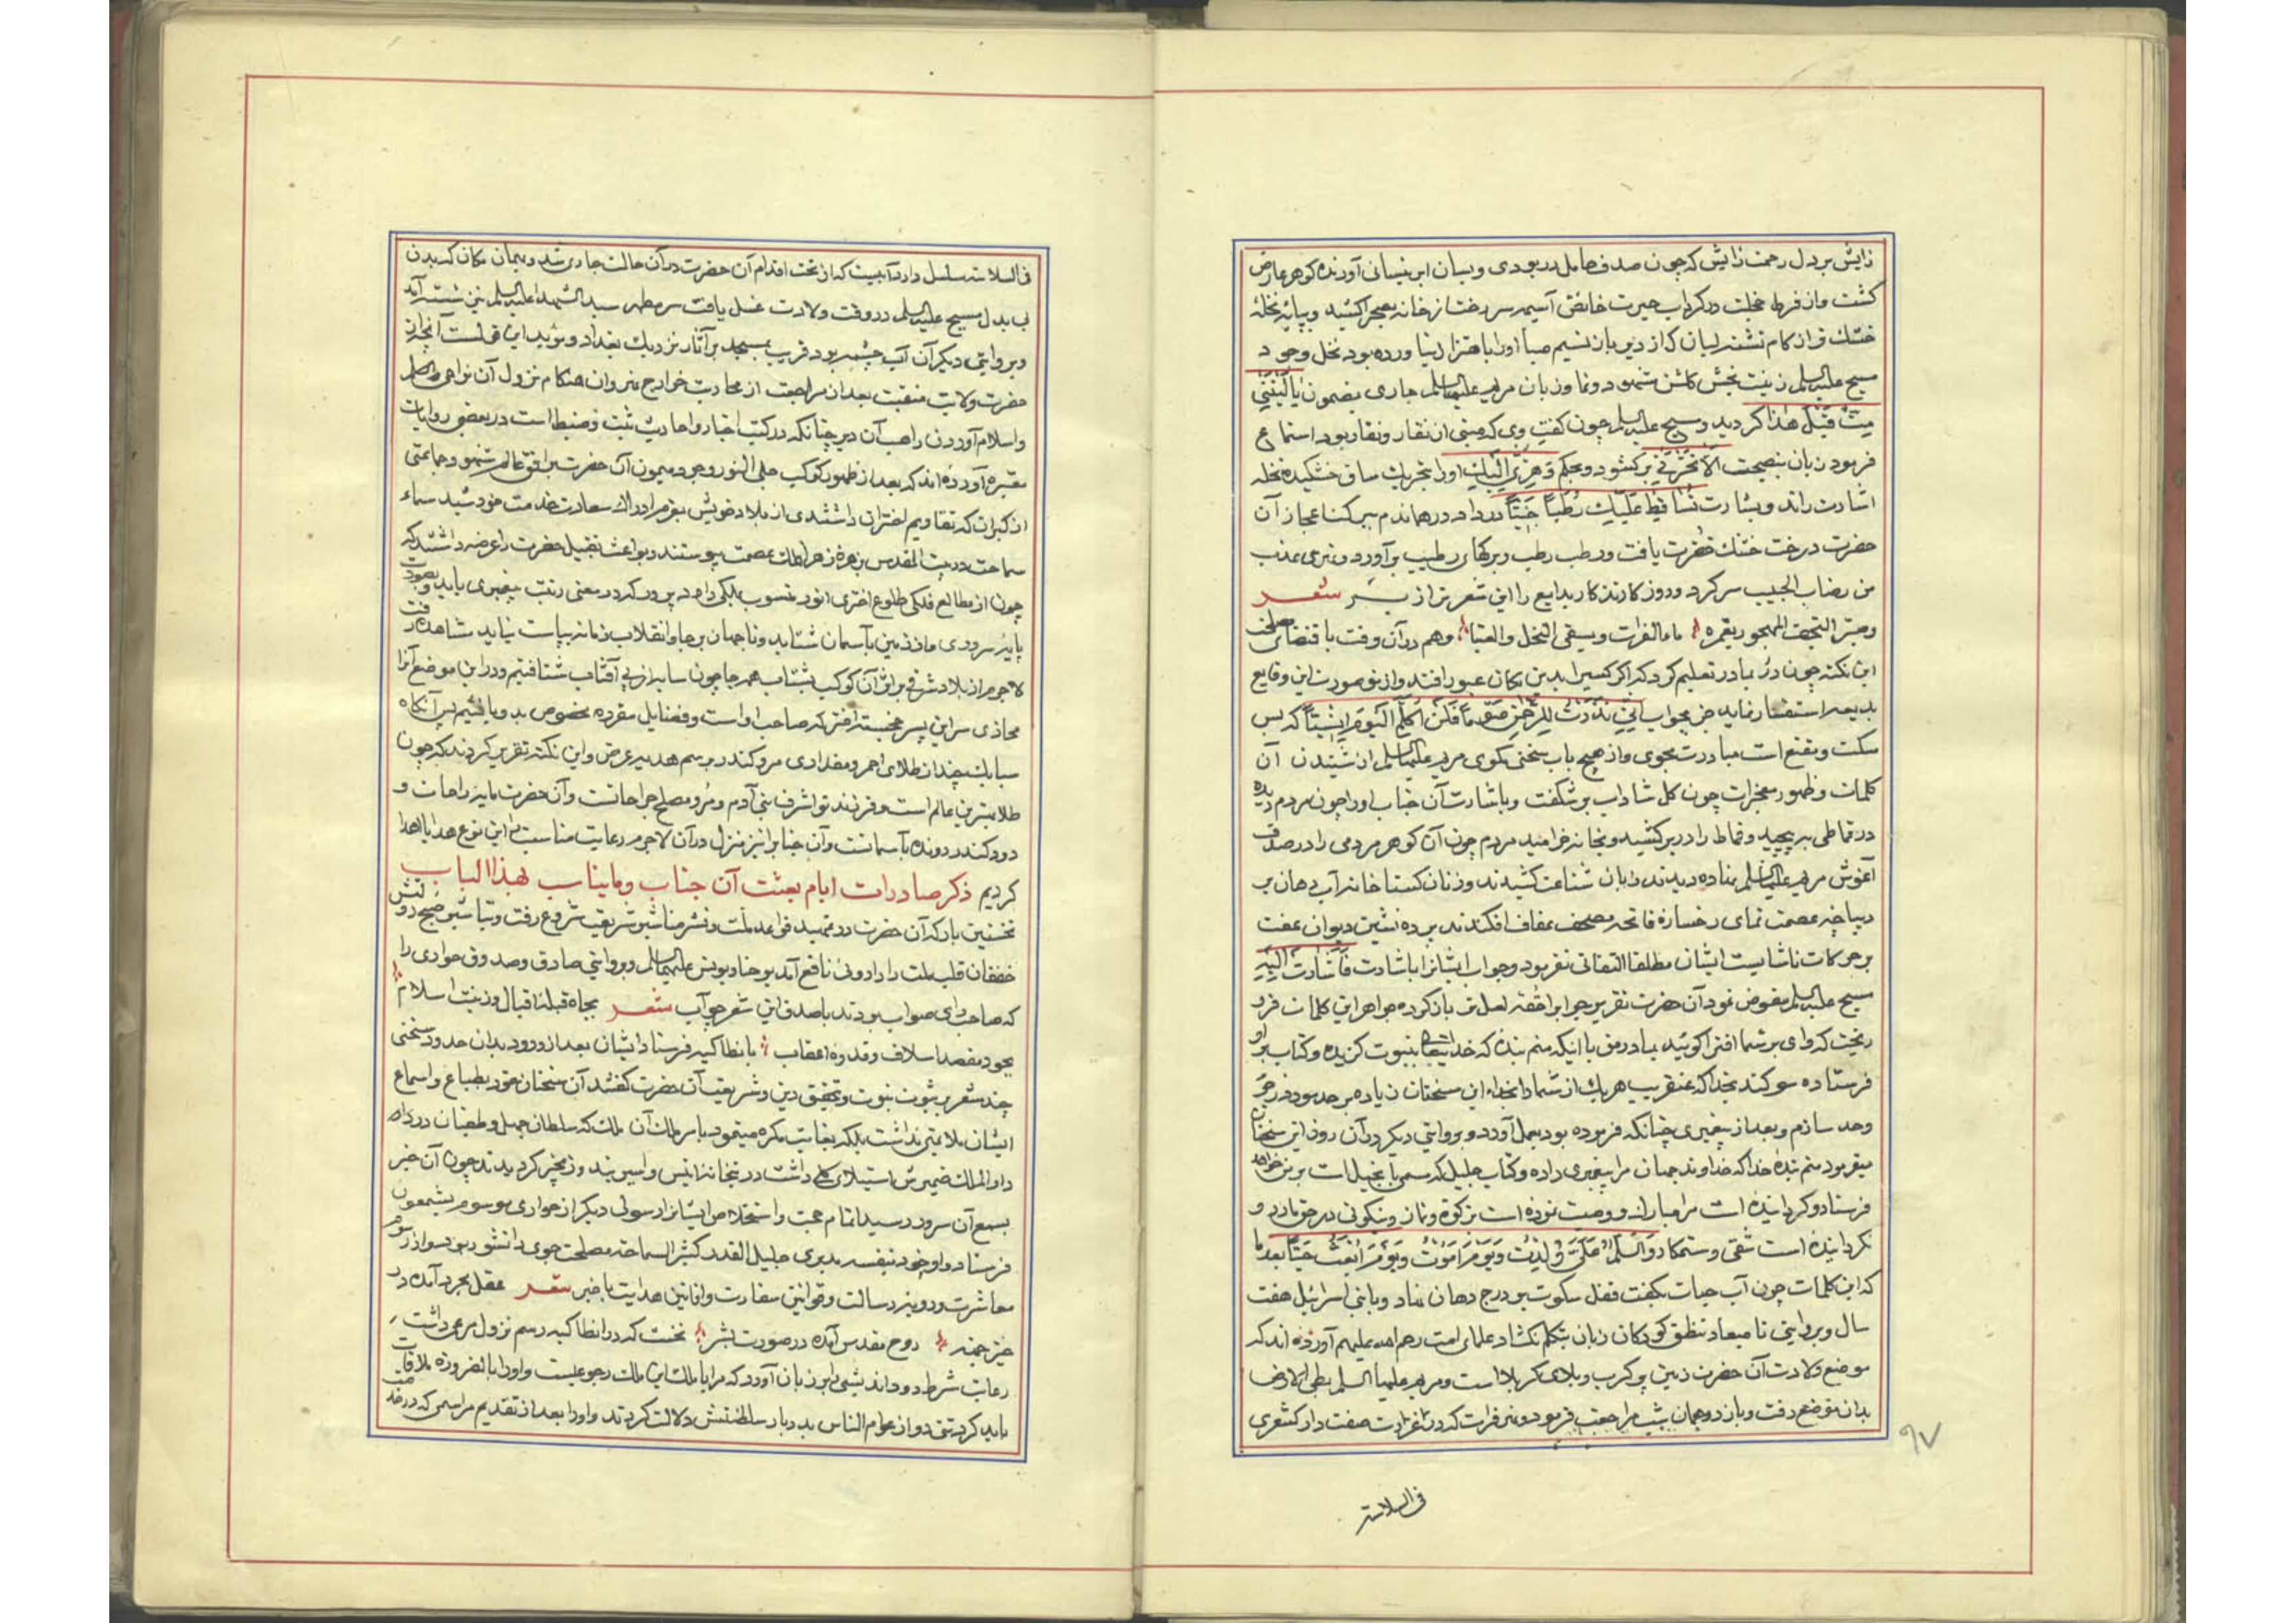 زایش بر دل رحمت زایش که چون صدف حامل در بودی و بسان ابر نیسانی آورنده کوهر عارض
کشت و از فرط خجلت در کرداب حیرت خائض آسیمه سر رخت از خانه بصحرا کشید و بپایه نخله
خشک تر از کام تشنه لبان که از دیر باز نسیم صبا او را باهتزاز نیاورده بود نخل وجود
مسیح علیه السلم زینت بخش کلشن شهود و نما و زبان مریم علیها السلم جاری بمضمون یا لَیْتَنی
مِتُّ قَبْلَ هٰذا کردید و مسیح علیه السلم چون کفت وی که مبنی از نقار و نقار بود استماع
فرمود زبان بنصیحت اَلاّ تَحْزَنی برکشود و بحکم وَ هُزّی اِلَیْکِ او را بتحریک ساق خشکیده نخله
اشارت راند و بشارت تُساقِطْ عَلَیْکِ رُطَباً جَنِیّاً در داد در همان دم ببرکت اعجاز آن
حضرت درخت خشک خضرت یافت و رطب رطب و برکهای رطیب برآورد و نهری عذب
من رضاب الحبیب سر کرد و روز کار تذکار بدایع را این شعر تر از بر شعر
وهم در آن وقت باقتضای مصلحت
این نکته چون در بمادر تعلیم کرد که اکر کسیرا بدین مکان عبور افتد و از تو صورت این وقایع
بدیعه استفسار نماید جز بجواب اِنّی نَذَرْتُ لِلرَّحْمٰنِ صَوْماً فَلَنْ اُکَلِّمَ الْیَوْمَ اِنْسِیّاً که بس
مسکت و مقنع است مبادرت مجوی و از هیچ باب سخنی مکوی مریم علیها السلم از شنیدن آن
کلمات و ظهور معجزات چون کل شاداب برشکفت و باشارت آن جناب او را چون مردم دیده
در قماطی بپیچید و قماط را در بر کشید و بخانه خرامید مردم چون آن کوهر مردمی را در صدف
آغوش مریم علیها السلم نهاده دیدند زبان شناعت کشیدند و زنان کستاخانه آب دهان بر
دیباچه عصمت نمای رخساره فاتحه مصحف عفاف افکندند پرده نشین دیوان عفت
بر حرکات ناشایست ایشان مطلقا التفاتی نفرمود و جواب ایشانرا باشارت فَاَشارَتْ اِلَیْهِ
مسیح علیه السلم مفوض نمود آن حضرت تقریر جواب را حقه لعل تر باز کرده جواهر این کلمات فرو
ریخت که وای بر شما افترا کوئید بمادر من با اینکه منم بنده که خدایتعالی بنبوت کزیده و کتاب بر او
فرستاده سوکند بخدا که عنقریب هر یک از شما را بجزاء این سخنان زیاده بر حد بود زجر
وحد سازم و بعد از پیغمبری چنانکه فرموده بود بعمل آورد و بروایتی دیکر در آن روز این سخنان
میفرمود منم بنده خدا که خداوند جهان مرا پیغمبری داده و کتاب جلیل که مسمی بانجیل است بر من خواهد
فرستاد و کردانیده است مرا مبارک و وصیت نموده است بزکوة و نماز و نیکوئی در حق مادر و
نکردانیده است شقی و ستمکار وَ السَّلامُ عَلَیَّ یَوْمَ وُلِدْتُ وَ یَوْمَ اَمُوتُ وَ یَوْمَ اُبْعَثُ حَیّاً بعد از
که این کلمات چون آب حیات بکفت قفل سکوت بر درج دهان نهاد و با بنی اسرائیل هفت
سال و بروایتی تا میعاد تنطق کودکان زبان بتکلم نکشاد علمای امت رحم الله علیهم آورده اند که
موضع ولادت آن حضرت زمین پر کرب و بلای کربلا است و مریم علیها السلم بطی الارض
بدان موضع رفت و باز در همان شب مراجعت فرمود و نهر فرات که در صفت دار کشعری
في السلاسة
۹۷
في السلاسة سلسل دارد آبیست که از تحت اقدام آن حضرت در آن حالت جاری شد و بهمان مکان که بدن
بی بدل مسیح علیه السلم در وقت ولادت غسل یافت سر مطهر سید الشهدا علیه السلم نیز شسته آمد
و بروایتی دیکر آن آب چشمه بود قریب بمسجد براثا نزدیک بغداد و مؤید این قولست آنچه از
حضرت ولایت منقبت بعد از مراجعت از محاربت خوارج نهروان هنکام نزول آن نواحی
و اسلام آوردن راهب آن دیر چنانکه در کتب اخبار و احادیث ثبت و ضبط است در بعضی روایات
معتبره آورده اند که بعد از ظهور کوکب جلی النور وجود میمون آن حضرت بر افق عالم شهود جماعتی
از کبرا که بتقاویم اختران داشتندی از بلاد خویش بعزم ادراک سعادت خدمت خورشید سماء
سماحت در بیت المقدس بزهره زهرا فلک عصمت پیوستند و بواعث تقبیل حضرت را عرضه داشتند که
چون از مطالع فلکی طلوع اختری انور منسوب بملکی داد در پرور که در معنی رتبت پیغمبری یابد و بصورت
پایه سروری و از زمین بآسمان شتابد و تا جهان برجا و انقلاب زمانه بپاست نیابد مشاهده رفت
لاجرم از بلاد شرقی بر اثر آن کوکب بشتاب همه جا چون سایه از پی آفتاب شتافتیم و در این موضع آنرا
محاذی سر این پسر خجسته اختر که صاحب او است و فضایل مقرده مخصوص بدو یافتیم پس آنکاه
سبایک چند از طلای احمر و مقداری مر و کندر برسم هدیه عرض و این نکته تقریر کردند که چون
طلا بهترین عالم است و فرزند تو اشرف بنی آدم و مر و مصلح جراحاتست و آن حضرت مایه راحات و
دود کندر رونده بآسمانست و آن جنابرا نیز منزل در آن لاجرم رعایت مناسبت را این نوع هدایا اهدا
کردیم ذکر صادرات ایام بعثت آن جناب و مایناسب بهذا الباب
نخستین بار که آن حضرت در تمهید قواعد ملت و نشر مناشیر شریعت شروع رفت و تباشیر صبح دولتش
خفقان قلب ملت را داروئی نافع آمد یوحنا و یونس علیهما السلم و بروایتی صادق و صدوق حواری را
که صاحب رای صواب بودند باصدق این شعر چو آب شعر بجاه قبله اقبال و زینت اسلام
بجود مقصد اسلاف و قدوه اعقاب بانطاکیه فرستاد ایشان بعد از ورود بدان حدود سخنی
چند مشعر بر ثبوت نبوت و تحقیق دین و شریعت آن حضرت کفتند آن سخنان نغز بطباع و اسماع
ایشان ملایمتی نداشت بلکه بغایت مکره مینمود بامر ملک آن ملک که سلطان جهل و طغیان در
دار الملک ضمیرش استیلای کلی داشت در بتخانه انیس و اسیر بند و زنجیر کردیدند چون آن خبر
بسمع آن سرور رسید اتمام حجت و استخلاص ایشانرا رسولی دیکر از حواری موسوم بشمعون
فرستاد و او خود بنفسه مدبری جلیل القدر کثیر السماحه مصلحت جوی دانشور بود سوا از رسوم
معاشرت و دو نیز رسالت و قوانین سفارت و افانین هدایت باخبر شعر عقل مجرد آمده در
روح مقدس آمده در صورت بشر نخست که در انطاکیه رسم نزول مرعی داشت
رعایت شرط دور اندیشی را بر زبان آورد که مرا با ملک این ملک رجوعیست و او را بالضروره ملاقات
باید کرد تنی دو از عوام الناس بدربار سلطنتش دلالت کردند و او را بعد از تقدیم مراسمی که در